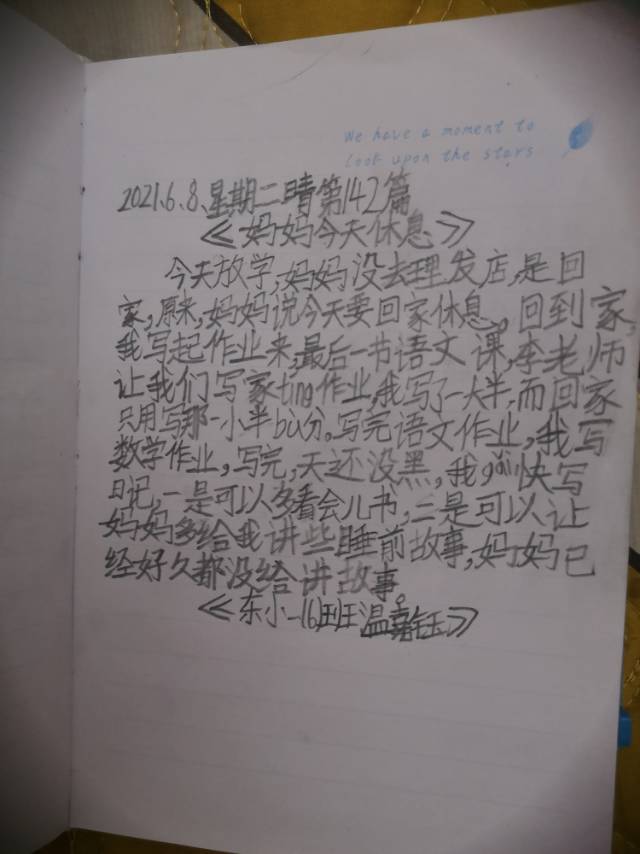 We have a moment to
look upon the stars
2021.6.8.星期二晴第142篇
《妈妈今天休息》
今天放学,妈妈没去理发店,是回
家,原来,妈妈说今天要回家休息。回到家,
我写起作业来,最后一节语文课,李老师
让我们写家ting作业,我写了一大半,而回家
只用写那一小半bu分。写完语文作业,我写
数学作业,写完,天还没黑,我gǎn快写
日记,一是可以多看会儿书,二是可以让
妈妈多给我讲些睡前故事,妈妈已
经好久都没给讲故事。
《东小一(6)班温嘉钰》